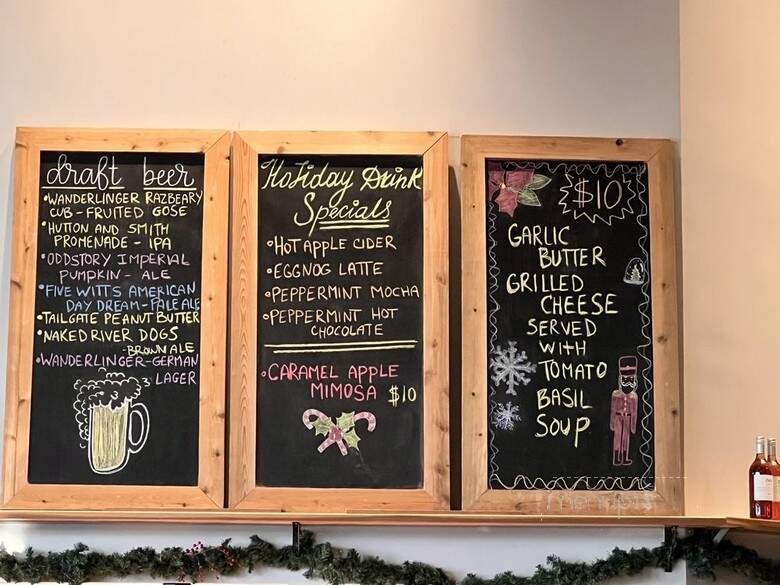 draft beer
•WANDERLINGER RAZBEARY
CUB - FRUITED GOSE
•HUTTON AND SMITH
PROMENADE - IPA
•ODDSTORY IMPERIAL
PUMPKIN - ALE
•FIVE WITTS AMERICAN
DAY DREAM - PALE ALE
•TAILGATE PEANUT BUTTER
•NAKED RIVER DOGS
-BROWN ALE
•WANDERLINGER-GERMAN
LAGER
Holiday Drink
Specials
•HOT APPLE CIDER
•EGGNOG LATTE
•PEPPERMINT MOCHA
•PEPPERMINT HOT
CHOCOLATE
•CARAMEL APPLE
MIMOSA $10
$10
GARLIC
BUTTER
GRILLED
CHEESE
SERVED
WITH
TOMATO
BASIL
SOUP